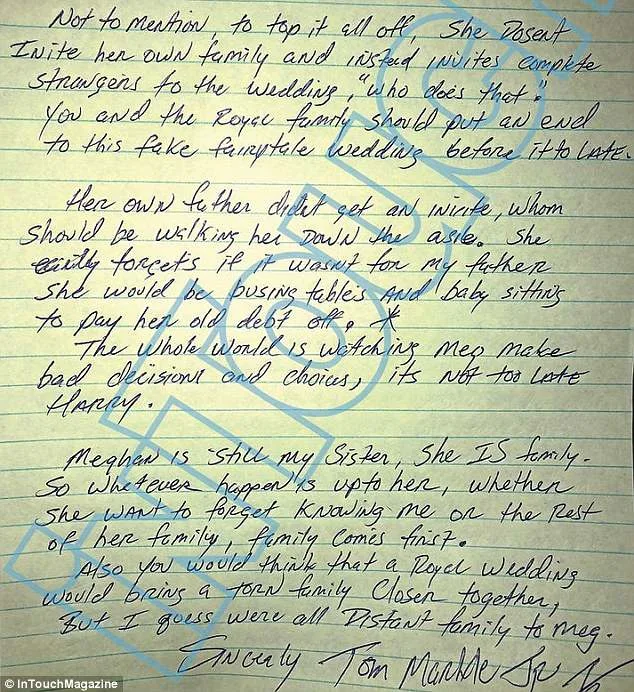 Not to mention, to top it all off She Dosent
Inite her own family and instead invites complete
strangers to the wedding, "who does that."
You and the Royal family should put an end
to this fake fairytale wedding before it to LATE.
Her own father didnt get an inivite, whom
Should be walking her Down the asle. She
forgets if it wasnt for my father
She would be busing tables AND baby sitting
to pay her old debt off. *
The whole world is watching Meg make
bad decisions and choices, its NOT too LATE
HARRY.
Meghan is still my Sister, She IS family.
So whatever happen is upto her, whether
She WANT to forget Knowing me or the Rest
of her family, family comes first.
Also you would think that a Royal wedding
would bring a TORN family Closer together,
But I guess were all Distant family to Meg.
Sincerly Tom Markle Jr
InTouch
© InTouchMagazine